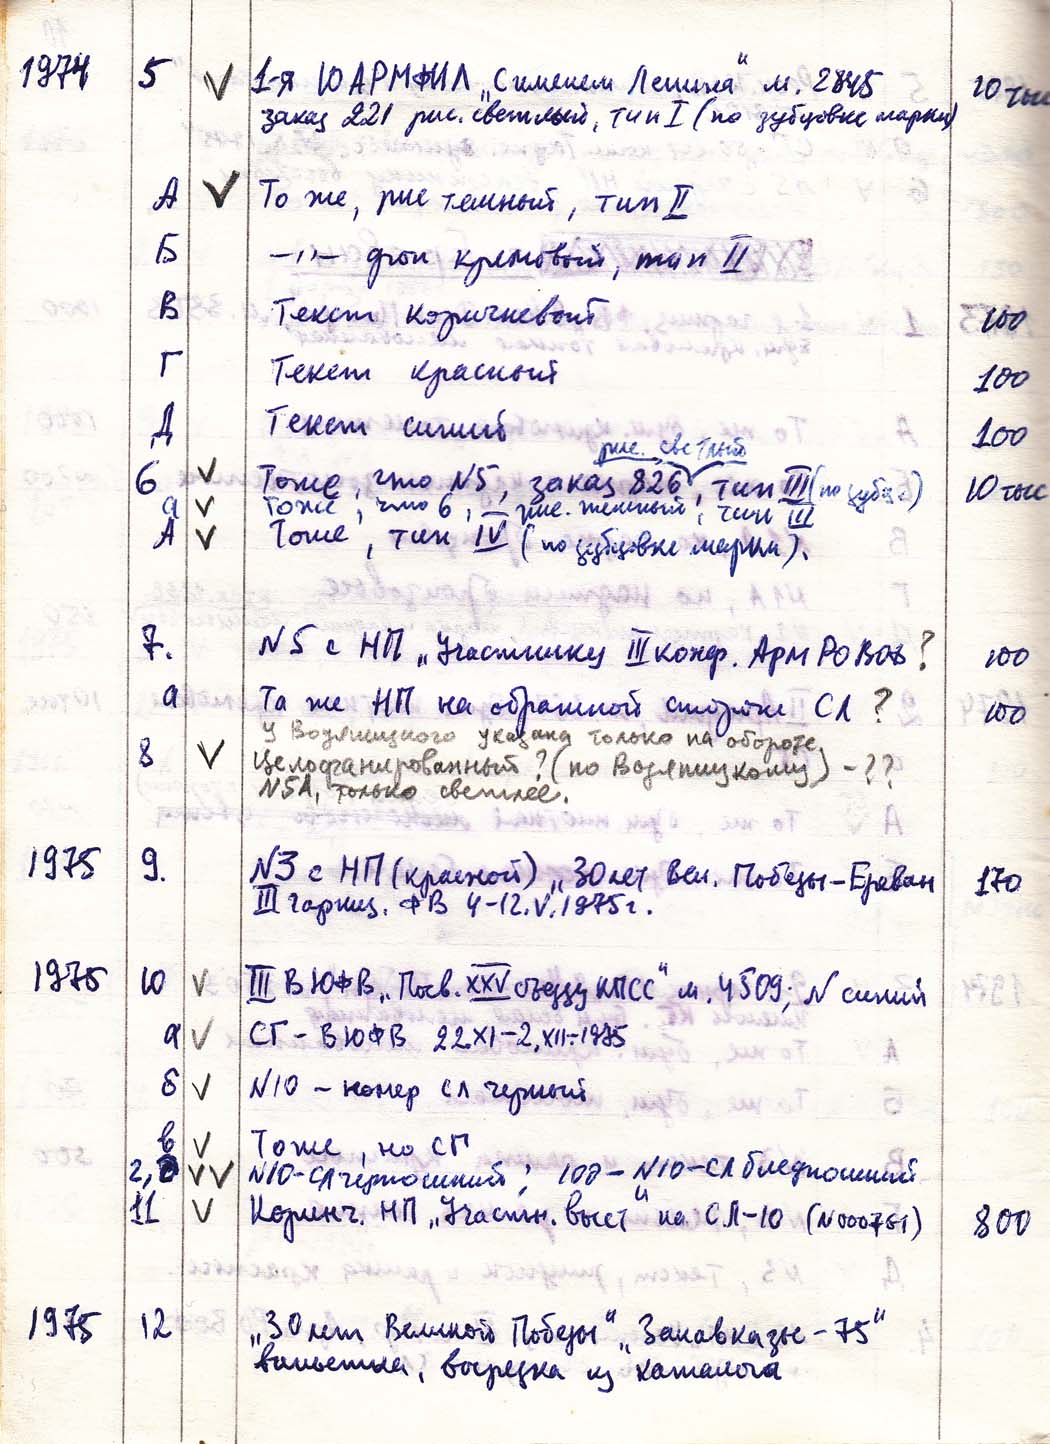 1974 5 V 1-я ЮАРМФИЛ „С именем Ленина" м. 2845 10 тыс
заказ 221 рис. светлый, тип I (по зубцовке марки)
А V То же, рис темный, тип II
Б —„— фон кремовый, тип II
В Текст коричневый 100
Г Текст красный 100
Д Текст синий 100
рис. светлый
6 V Тоже, что N5, заказ 826, тип III (по зубц.) 10 тыс
а V Тоже, что 6, рис. темный, тип III
А V Тоже, тип IV (по зубцовке марки).
7. N5 с НП „Участнику III конф. Арм РО ВОФ ? 100
а Та же НП на обратной стороне СЛ ? 100
У Водяницкого указана только на обороте
8 V Целофанированный? (по Водяницкому) - ??
N5А, только светлее.
1975 9. N3 с НП (красной) „30 лет Вел. Победы - Ереван 170
III гарниз. ФВ 4-12.V.1975г.
1975 10 V III ВЮФВ „Посв. XXV съезду КПСС" м. 4509; N синий
а V СГ - ВЮФВ 22.XI-2.XII-1975
б V N10 - номер СЛ черный
в V Тоже, но СГ
г, VV N10-СЛ черносиний; 10д - N10-СЛ бледносиний
11 V Коричн. НП „Участн. выст" на СЛ-10 (N000761) 800
1975 12 „30 лет Великой Победы" „Закавказье - 75"
виньетка, вырезка из каталога